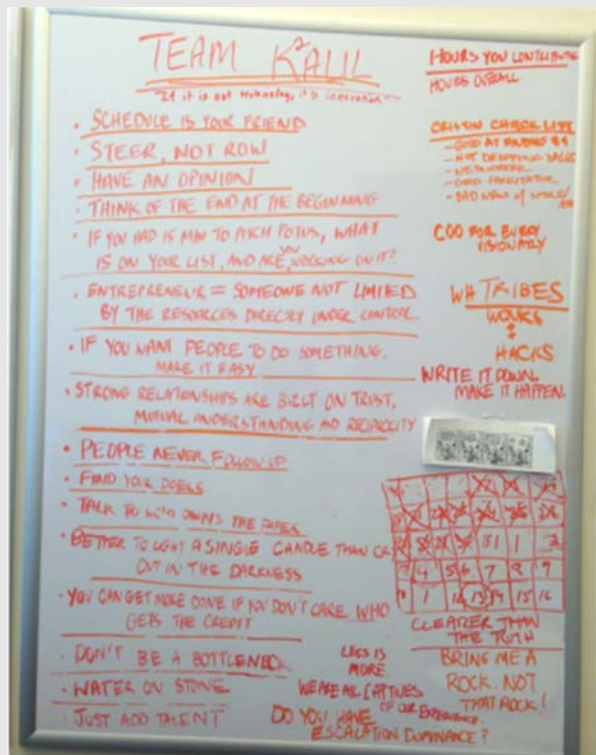 TEAM K²ALIL
"If it is not technology, it's innovation"
• SCHEDULE IS YOUR FRIEND
• STEER, NOT ROW
• HAVE AN OPINION
• THINK OF THE END AT THE BEGINNING
• IF YOU HAD 15 MIN TO PITCH POTUS, WHAT
IS ON YOUR LIST, AND ARE YOU WORKING ON IT?
• ENTREPRENEUR = SOMEONE NOT LIMITED
BY THE RESOURCES DIRECTLY UNDER CONTROL
• IF YOU WANT PEOPLE TO DO SOMETHING,
MAKE IT EASY
• STRONG RELATIONSHIPS ARE BUILT ON TRUST,
MUTUAL UNDERSTANDING AND RECIPROCITY
• PEOPLE NEVER FOLLOW UP
• FIND YOUR DOERS
• TALK TO WHO OWNS THE PAPER
• BETTER TO LIGHT A SINGLE CANDLE THAN
OUT IN THE DARKNESS
• YOU CAN GET MORE DONE IF YOU DON'T CARE WHO
GETS THE CREDIT
• DON'T BE A BOTTLENECK
• WATER ON STONE
• JUST ADD TALENT
HOURS YOU CONTRIBUTE
HOURS OVERALL
CRISTIN CHECK LIST
- GOOD AT FINDING $$
- NOT DROPPING BALLS
- NETWORKER
- GOOD FACILITATOR
- BAD NEWS
COO FOR EVERY
VISIONARY
WH TRIBES
WONKS
HACKS
WRITE IT DOWN,
MAKE IT HAPPEN.
31 1 2
4 5 6 7 8 9
1 12 13 14 15 16
CLEARER THAN
THE TRUTH
LESS IS
MORE.
BRING ME A
ROCK. NOT
THAT ROCK!
WE ARE ALL CAPTIVES
OF OUR EXPERIENCE.
DO YOU HAVE
ESCALATION DOMINANCE?